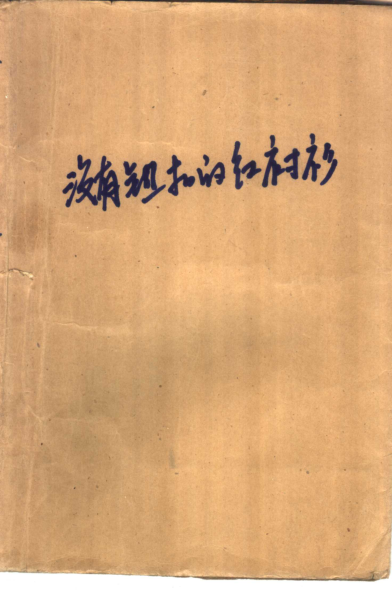 没有纽扣的红衬衫